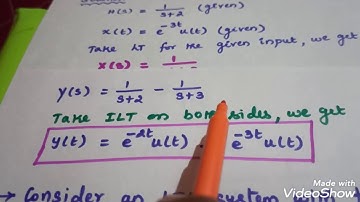 H(s) = 1/(s+2) (given)
x(t) = e^-3t u(t) (given)
Take LT for the given input, we get
X(s) = 1
Y(s) = 1/(s+2) - 1/(s+3)
Take ILT on both sides, we get
y(t) = e^-2t u(t) e^-3t u(t)
→ Consider an system
Made with
VideoShow